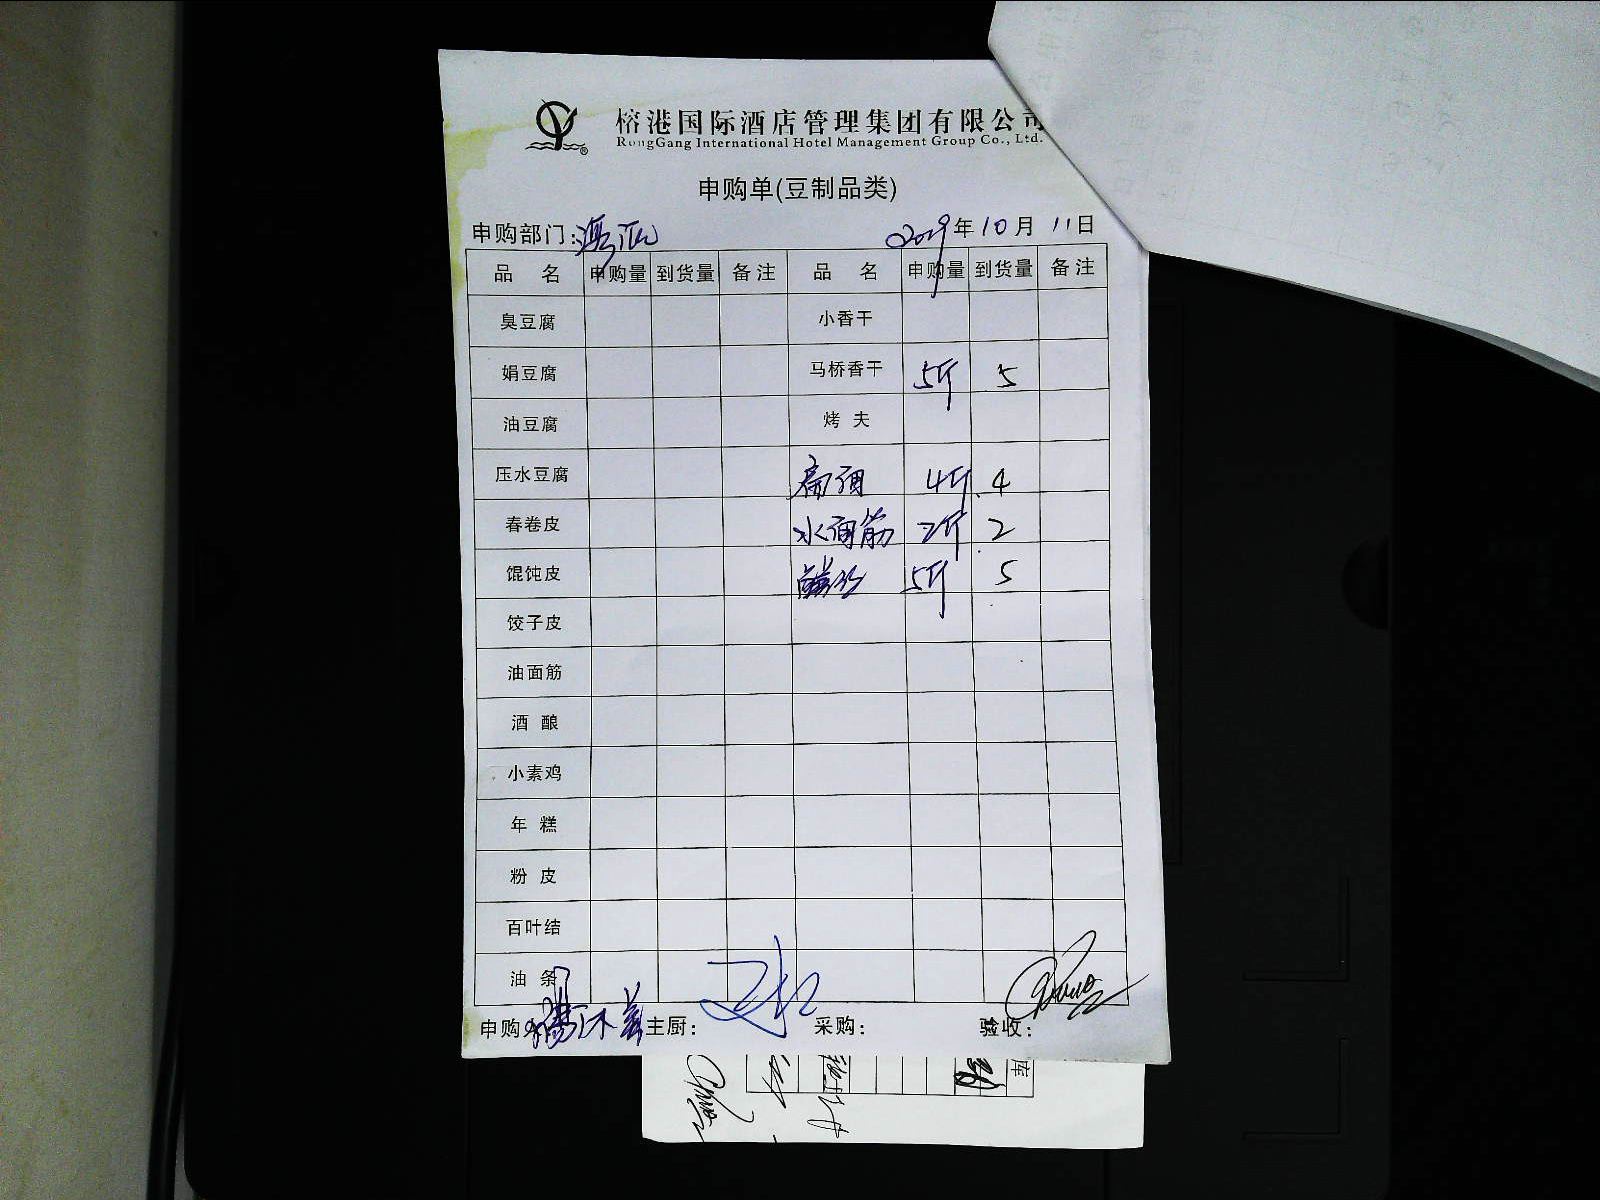 榕港国际酒店管理集团有限公司
RongGang International Hotel Management Group Co., Ltd.
申购单(豆制品类)
申购部门: 2019年10月11日
品 名 申购量 到货量 备注 品 名 申购量 到货量 备注
臭豆腐 小香干
娟豆腐 马桥香干 5斤 5
油豆腐 烤 夫
压水豆腐 4斤 4
春卷皮 水面筋 2斤 2
馄饨皮 5斤 5
饺子皮
油面筋
酒 酿
小素鸡
年 糕
粉 皮
百叶结
油 条
申购 主厨: 采购: 验收:
库